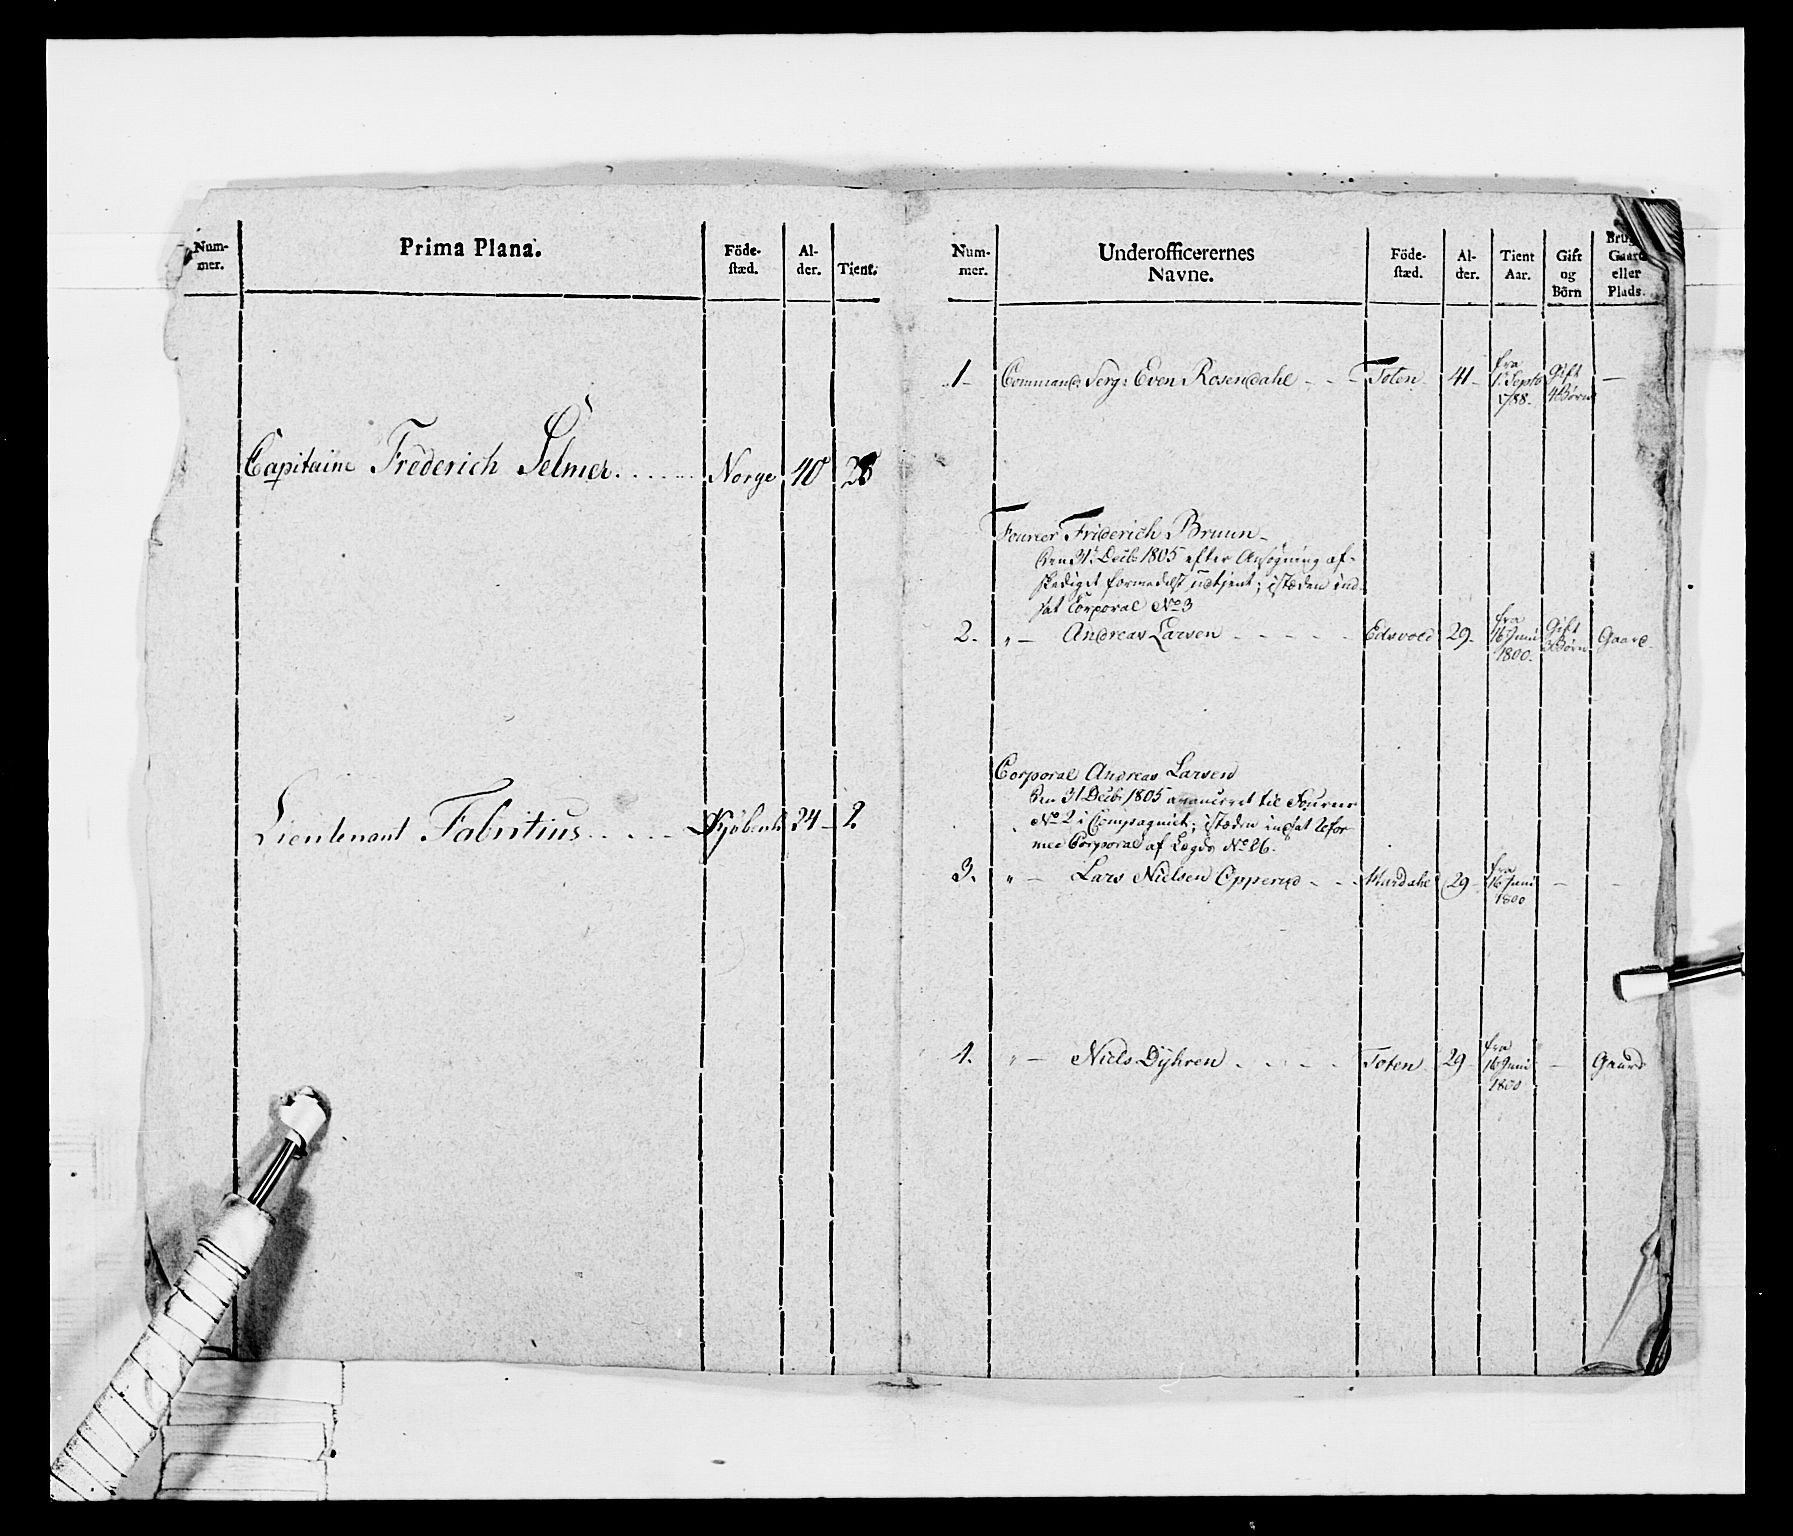 Num-
mer.
Prima Plana.
Föde-
stæd.
Al-
der.
Tient.
Capitaine Frederich Selmer. Norge 40
Lieutenant Fabritius Kjöbenh 24 - 2
Num-
mer.
Underofficerernes
Navne.
Föde-
stæd.
Al-
der.
Tient
Aar.
Gift
og
Börn
Brug
Gaard
eller
Plads.
1 - Command: Serg: Even Rosendahl - - - Toten 41 - fra 1: Septb 1788. Gift 4 Börn -
Foureer Friderich Bruun
Den 31: Decb: 1805 efter Ansøgning af-
skediget formedelst udtjent; istæden ind-
sat Corporal No 3
2. " - Andreas Larsen - - - - - Edsvold 29 - fra 16 Juni 1800. Gift 3 Börn Gaard.
Corporal Andreas Larsen
Den 31 Decb: 1805 avanceret til Foureer
No 2 i Compagniet; istæden indsat Refor-
med Corporal af Lægds No 26.
3. " - Lars Nielsen Opperud - - - Hurdahl 29 - fra 16 Juni 1800 - -
4. " - Niels Dyhren - - - - Toten 29 - fra 16 Juni 1800 - Gaard